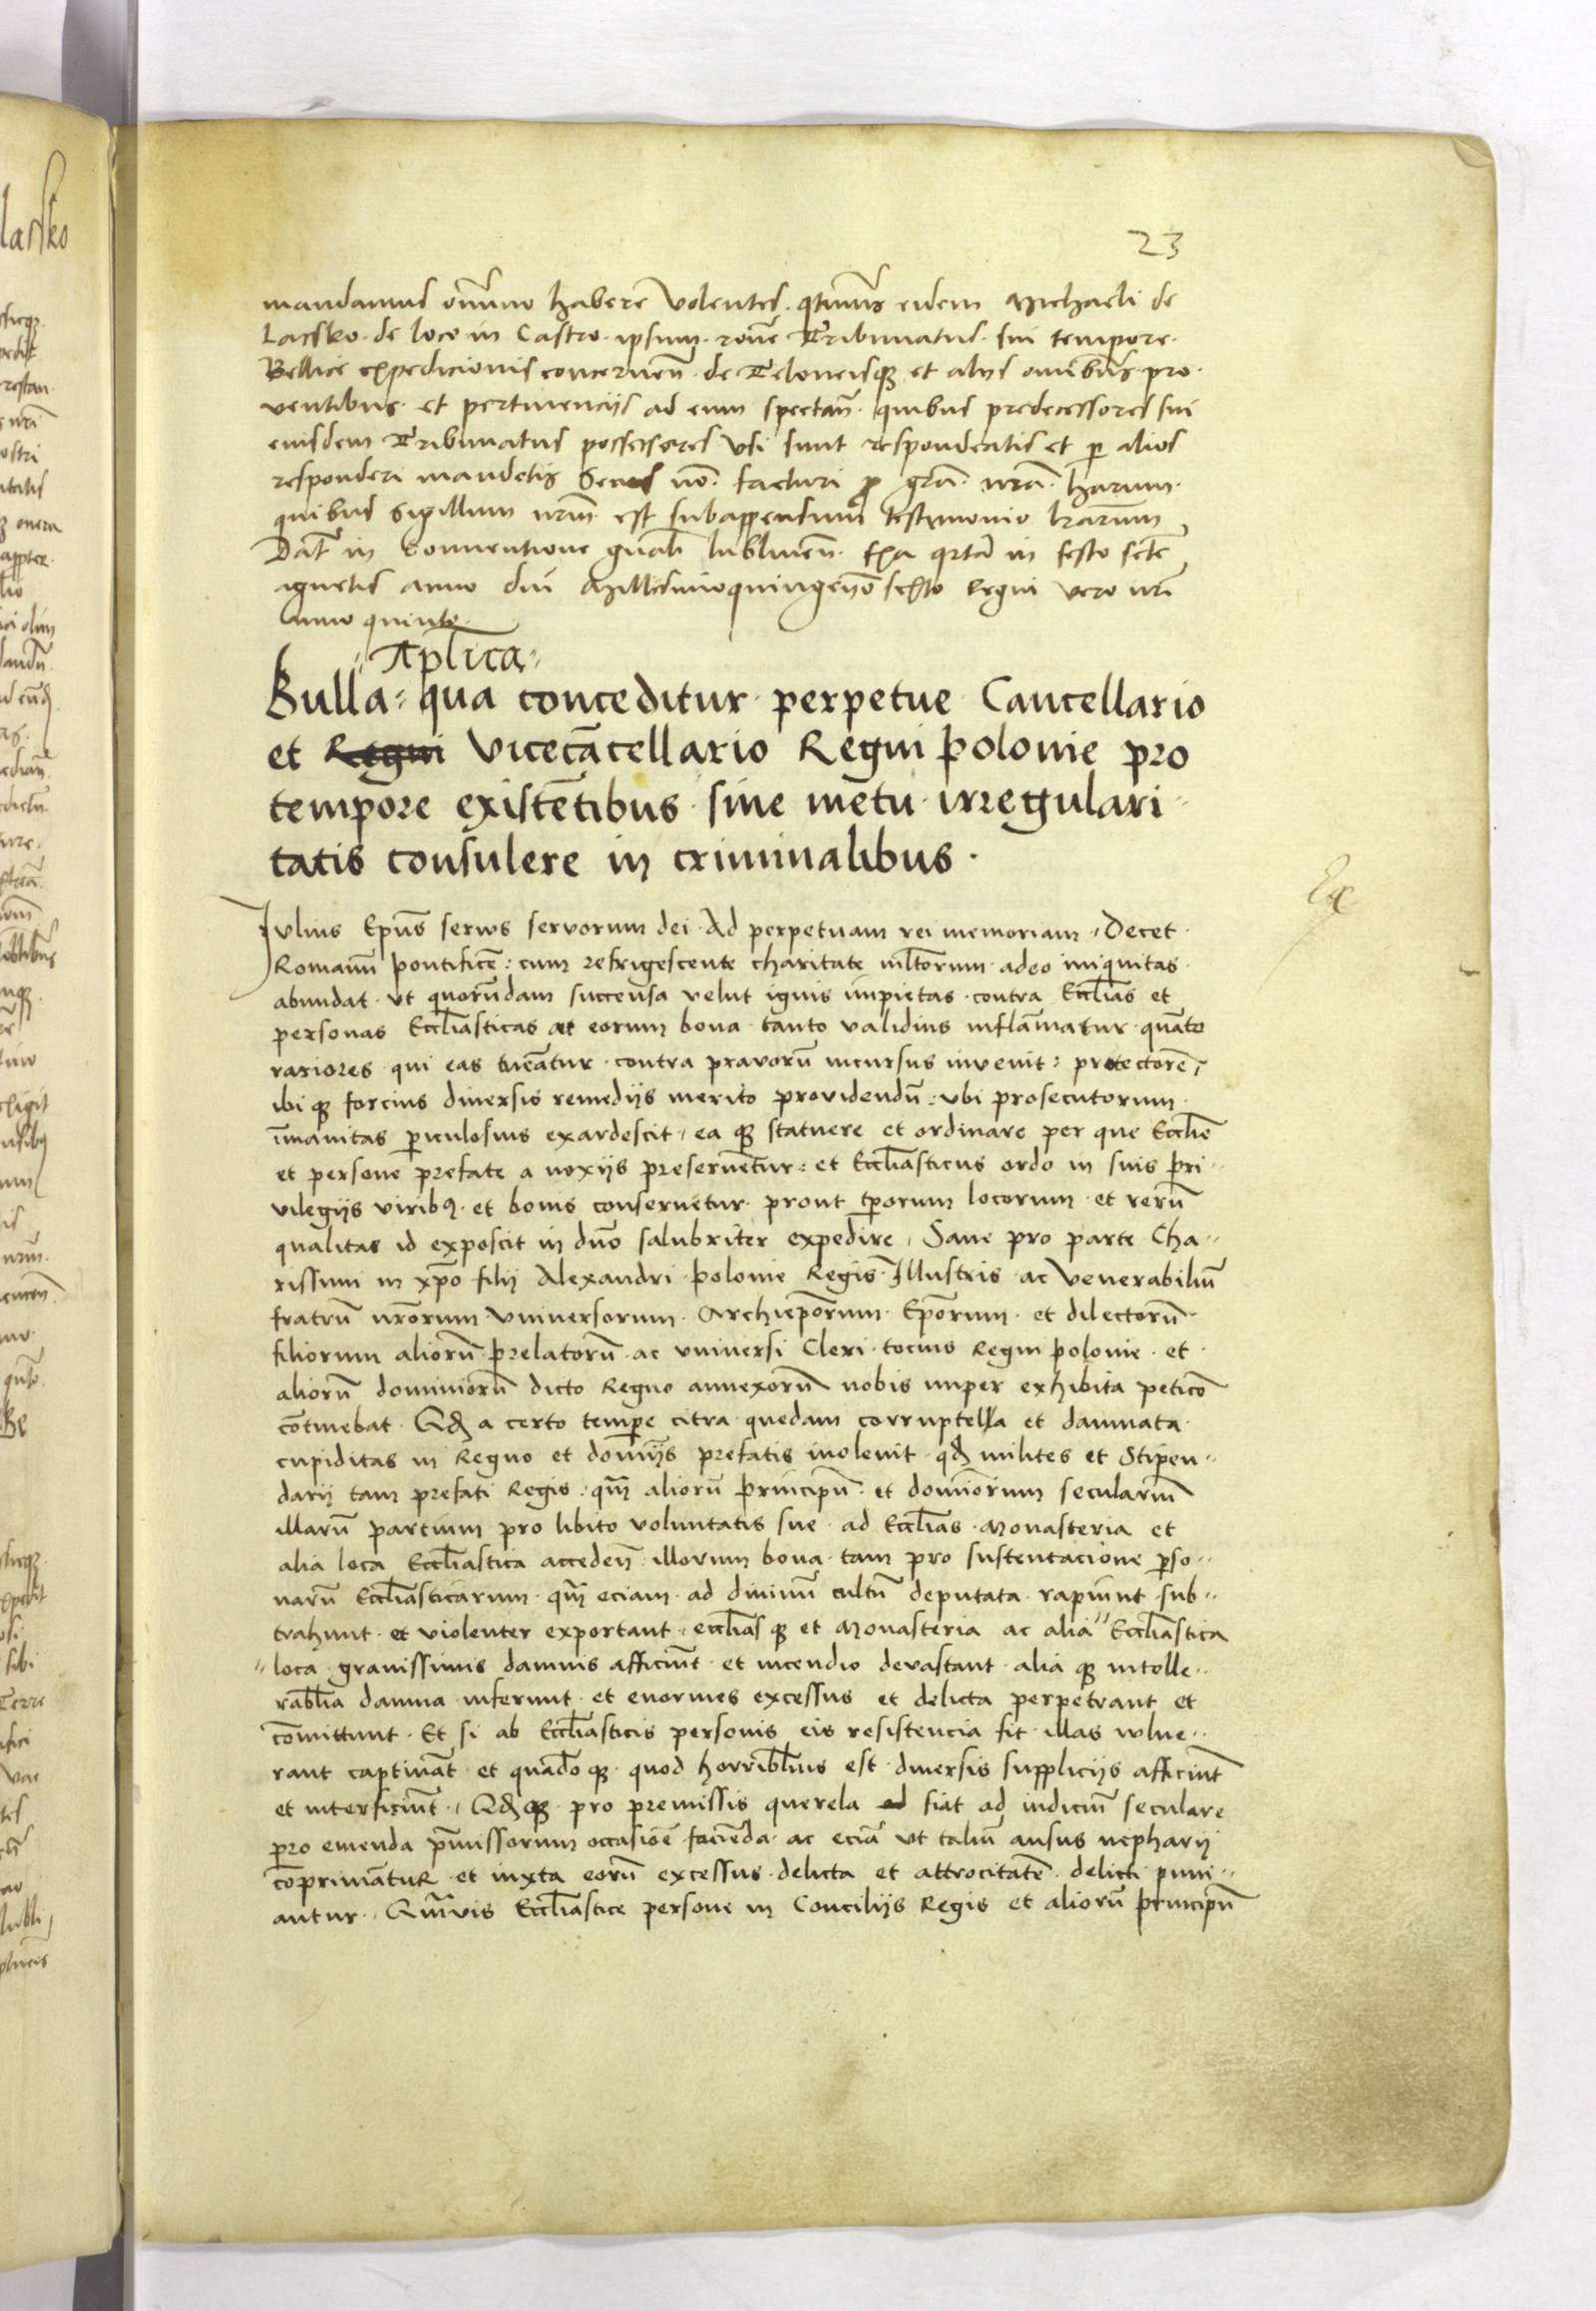 23
mandamus om̄ino habere volentes. q̄tinus eidem Michaeli de
Lacsko. de loco in Castro. ipsum. rōne Tribunatus. sui tempore.
Bellice expedicionis concernen̄. de Teloneisq̨ et alys om̄ibus. pro
ventibus. et pertinencijs ad eum spectan̄. quibus predecessores sui
eiusdem Tribunatus possessores vsi sunt respondeatis et p̱ alios
responderi mandetis Secus nō. facturi ꝓ grā. nrā. harum.
quibus Sigillum nrm̄. est subappensum testimonio lrarum
Dat̄ in Conuentione gn̄ali lublinen̄. fexa q̄rta in festo scte
agnetis anno dn̄i Millesimoquingen̄o sexto Regni vero nrī
anno quinto.
Aplīca
Bulla qua conceditur perpetue Cancellario
et Regni Vicecācellario Regni polonie pro
tempore existētibus. sine metu irregulari
tatis consulere in criminalibus.
Iulius Epūs serws servorum dei. Ad perpetuam rei memoriam. Decet.
Romanū pontificē: cum refrigescente charitate mltorum. adeo iniquitas.
abundat. vt quorundam succensa velut ignis impietas. contra Eccl̄ias et
personas Eccl̄iasticas at eorum bona. tanto validius inflāmatur. quāto
rariores qui eas tueātur. contra pravorū incursus invenit: protectorē,
ibi q̨ forcius diuersis remedijs merito providendū: vbi prosecutorum.
īmanitas p̱iculosius exardescit, ea q̨ statuere et ordinare per que Eccl̄ie
et persone prefate a noxijs preseruētur: et Eccl̄iasticus ordo in suis pri
vilegijs viribꝰ. et bonis conseruētur. prout tp̄orum locorum. et rerū
qualitas id exposcit in dn̄o salubriter expedire. Sane pro parte Cha
rissimi in xp̄o filij Alexandri polonie Regis. Illustris ac Venerabiliū
fratrū nr̄orum vniuersorum. Archiep̄orum. Ep̄orum. et dilectorū
filiorum aliorū prelatorū. ac vniuersi Cleri. tocius Regni polonie. et
aliorū dominiorū dicto Regno annexorū nobis nuper exhibita peticō
cōtinebat. Qd̨ a certo temp̱e citra quedam corruptella et damnata
cupiditas in Regno et domijs prefatis inolevit. qd̨ milites et Stipen
darij tam prefati Regis. qm̄ aliorū principū et domīorum seculariū
illarū parcium pro libito voluntatis sue ad Eccl̄ias. Monasteria et
alia loca Eccl̄iastica acceden̄. illorum bona. tam pro sustentacione p̱so
narū Eccl̄iasticarum. qm̄ eciam. ad diuinū cultū deputata. rapiunt. sub
trahunt. et violenter exportant. eccl̄ias q̨ et Monasteria ac alia Eccl̄iastica
loca. grauissimis damnis afficiūt. et incendio devastant. alia q̨ intolle
rabl̄ia damna inferunt. et enormes excessus et delicta perpetrant et
cōmittunt. Et si ab Eccl̄iasticis personis eis resistencia fit. illas wlne
rant captiuāt. et quādo q̨. quod horribl̄ius est. diuersis supplicijs afficiūt
et interficiūt. Qd̨ q̨. pro premissis querela ad fiat ad iudiciū seculare
pro emenda p̄missorum occasiōe facienda. ac eciā vt taliū ausus nepharij
cōprimātur et iuxta eorū excessus. delicta et attrocitatē. delicti puni
antur. Qm̄vis Eccl̄iastice persone in Concilijs Regis et aliorū principū